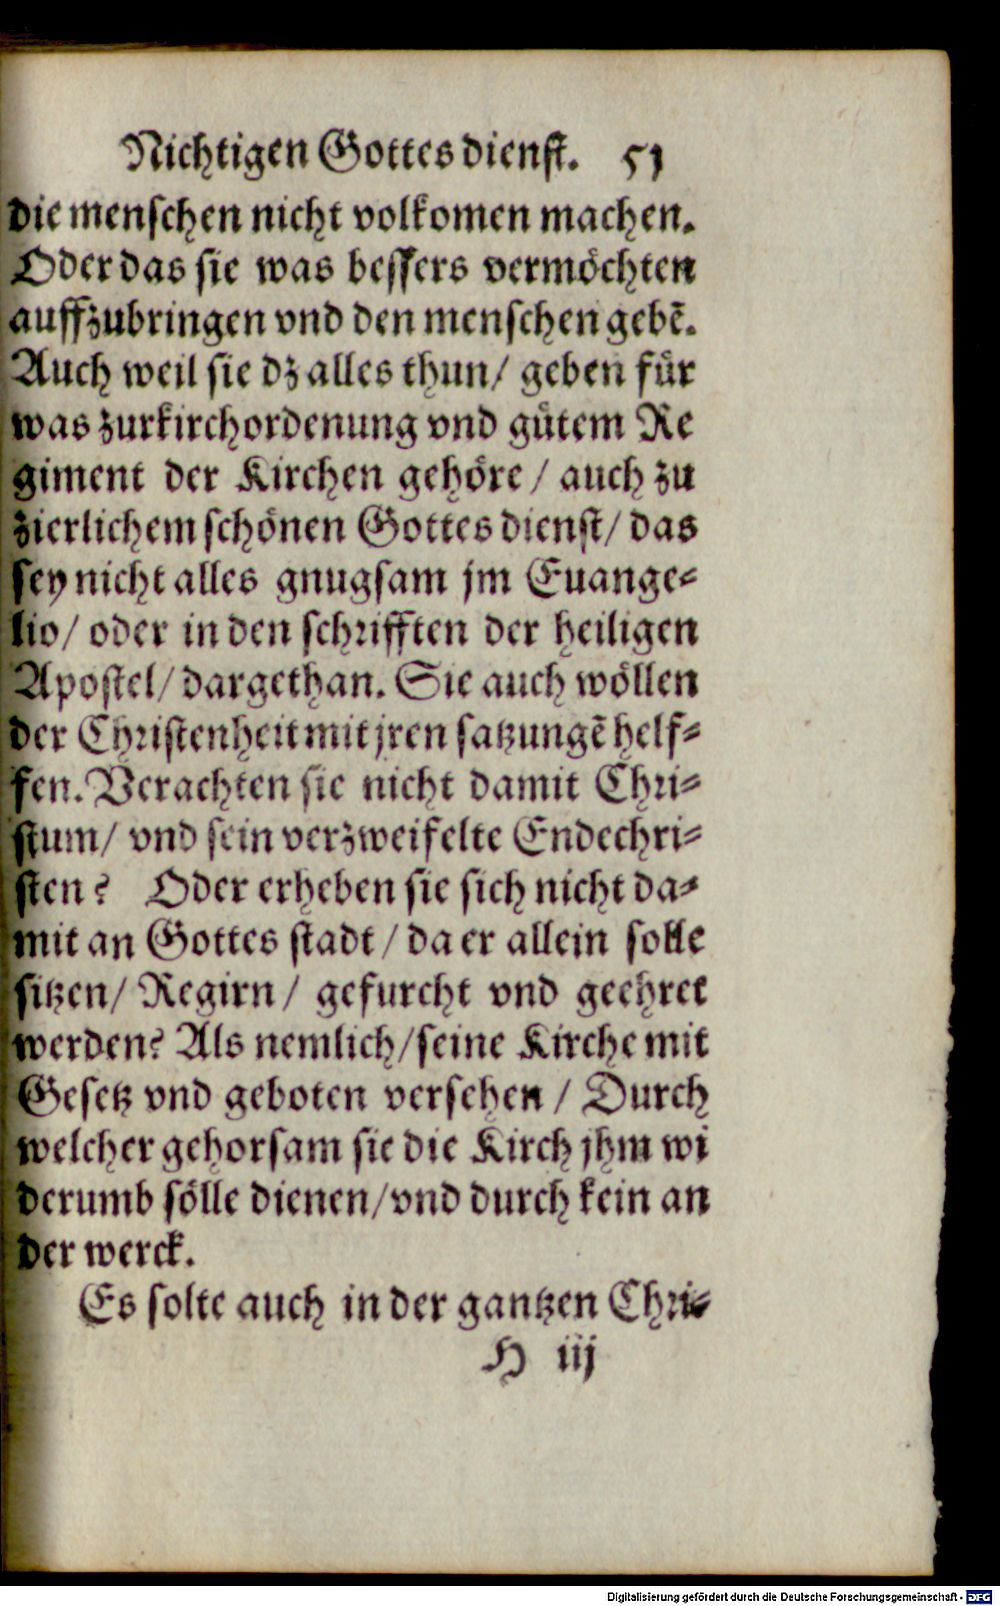 Nichtigen Gottesdienst. 51
die menschen nicht volkomen machen.
Oder das sie was bessers vermöchten
auffzubringen vnd den menschen gebē.
Auch weil sie dz alles thun/ geben für
was zurkirchordenung vnd gůtem Re
giment der Kirchen gehöre / auch zu
zierlichem schönen Gottesdienst/ das
sey nicht alles gnugsam jm Euange-
lio/ oder in den schrifften der heiligen
Apostel/ dargethan. Sie auch wöllen
der Christenheit mit jren satzungē helf-
fen. Verachten sie nicht damit Chri-
stum/ vnd sein verzweifelte Endechri-
sten? Oder erheben sie sich nicht da-
mit an Gottes stadt / da er allein solle
sitzen/ Regirn / gefurcht vnd geehret
werden? Als nemlich/ seine Kirche mit
Gesetz vnd geboten versehen / Durch
welcher gehorsam sie die Kirch jhm wi
derumb sölle dienen/ vnd durch kein an
der werck.
Es solte auch in der gantzen Chri-
H iij
Digitalisierung gefördert durch die Deutsche Forschungsgemeinschaft - DFG